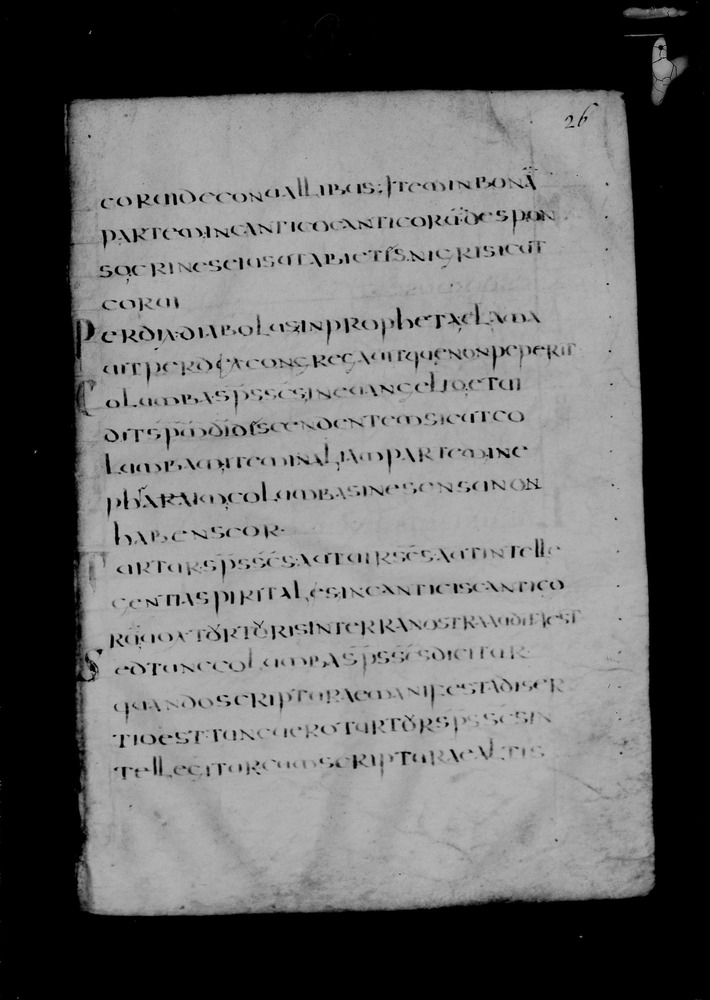 26
CORUIDECONUALLIBUS; ITEMINBONĀ
PARTEMINCANTICOCANTICORŪDESPON
SOCRINESEIUSUTABIETISNIGRISICUT
CORUI
PERDIXDIABOLUSINPROPHETACLAMA
UITPERDIXCONGREGAUITQUENONPEPERIT
COLUMBASPSSCSINEUANGELIOETUI
DITSPMDIDISCENDENTEMSICUTCO
LUMBAMITEMINALIAMPARTEMINE
PHRAIMCOLUMBASINESENSUNON
HABENSCOR
TURTURSPSSCSAUTUIRSCSAUTINTELLE
GENTIASPIRITALESINCANTICISCANTICO
RUMUOXTURTURISINTERRANOSTRAAUDITAEST
SEDTUNCCOLUMBASPSSCSDICITUR
QUANDOSCRIPTURAEMANIFESTADISER
TIOESTTUNCUEROTURTURSPSSCSIN
TELLEGITURCUMSCRIPTURAEALTIS